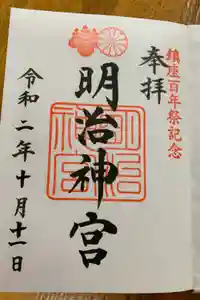 鎮座百年祭記念
奉拝
明治神宮
令和二年十月十一日